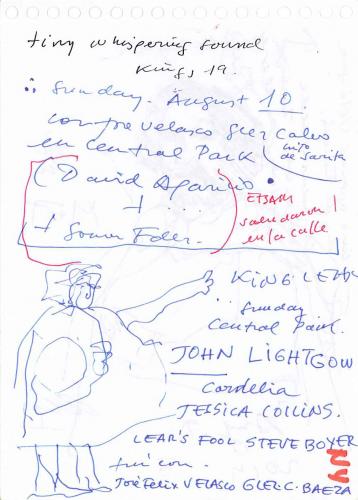 tiny whispering sound
Kings 19.
Sunday. August 10.
con pre Velasco Glez Calvo
en Central Park
hijo de Sarita
(David Aparicio
+
+ Fder.
se saludaron
en la calle
KING LEAR
Sunday
Central Park.
JOHN LIGHTGOW
Cordelia
JESSICA COLLINS.
LEAR'S FOOL STEVE BOYER
NY
fui con.
José Felix VELASCO GLEZ. C. BAEZA